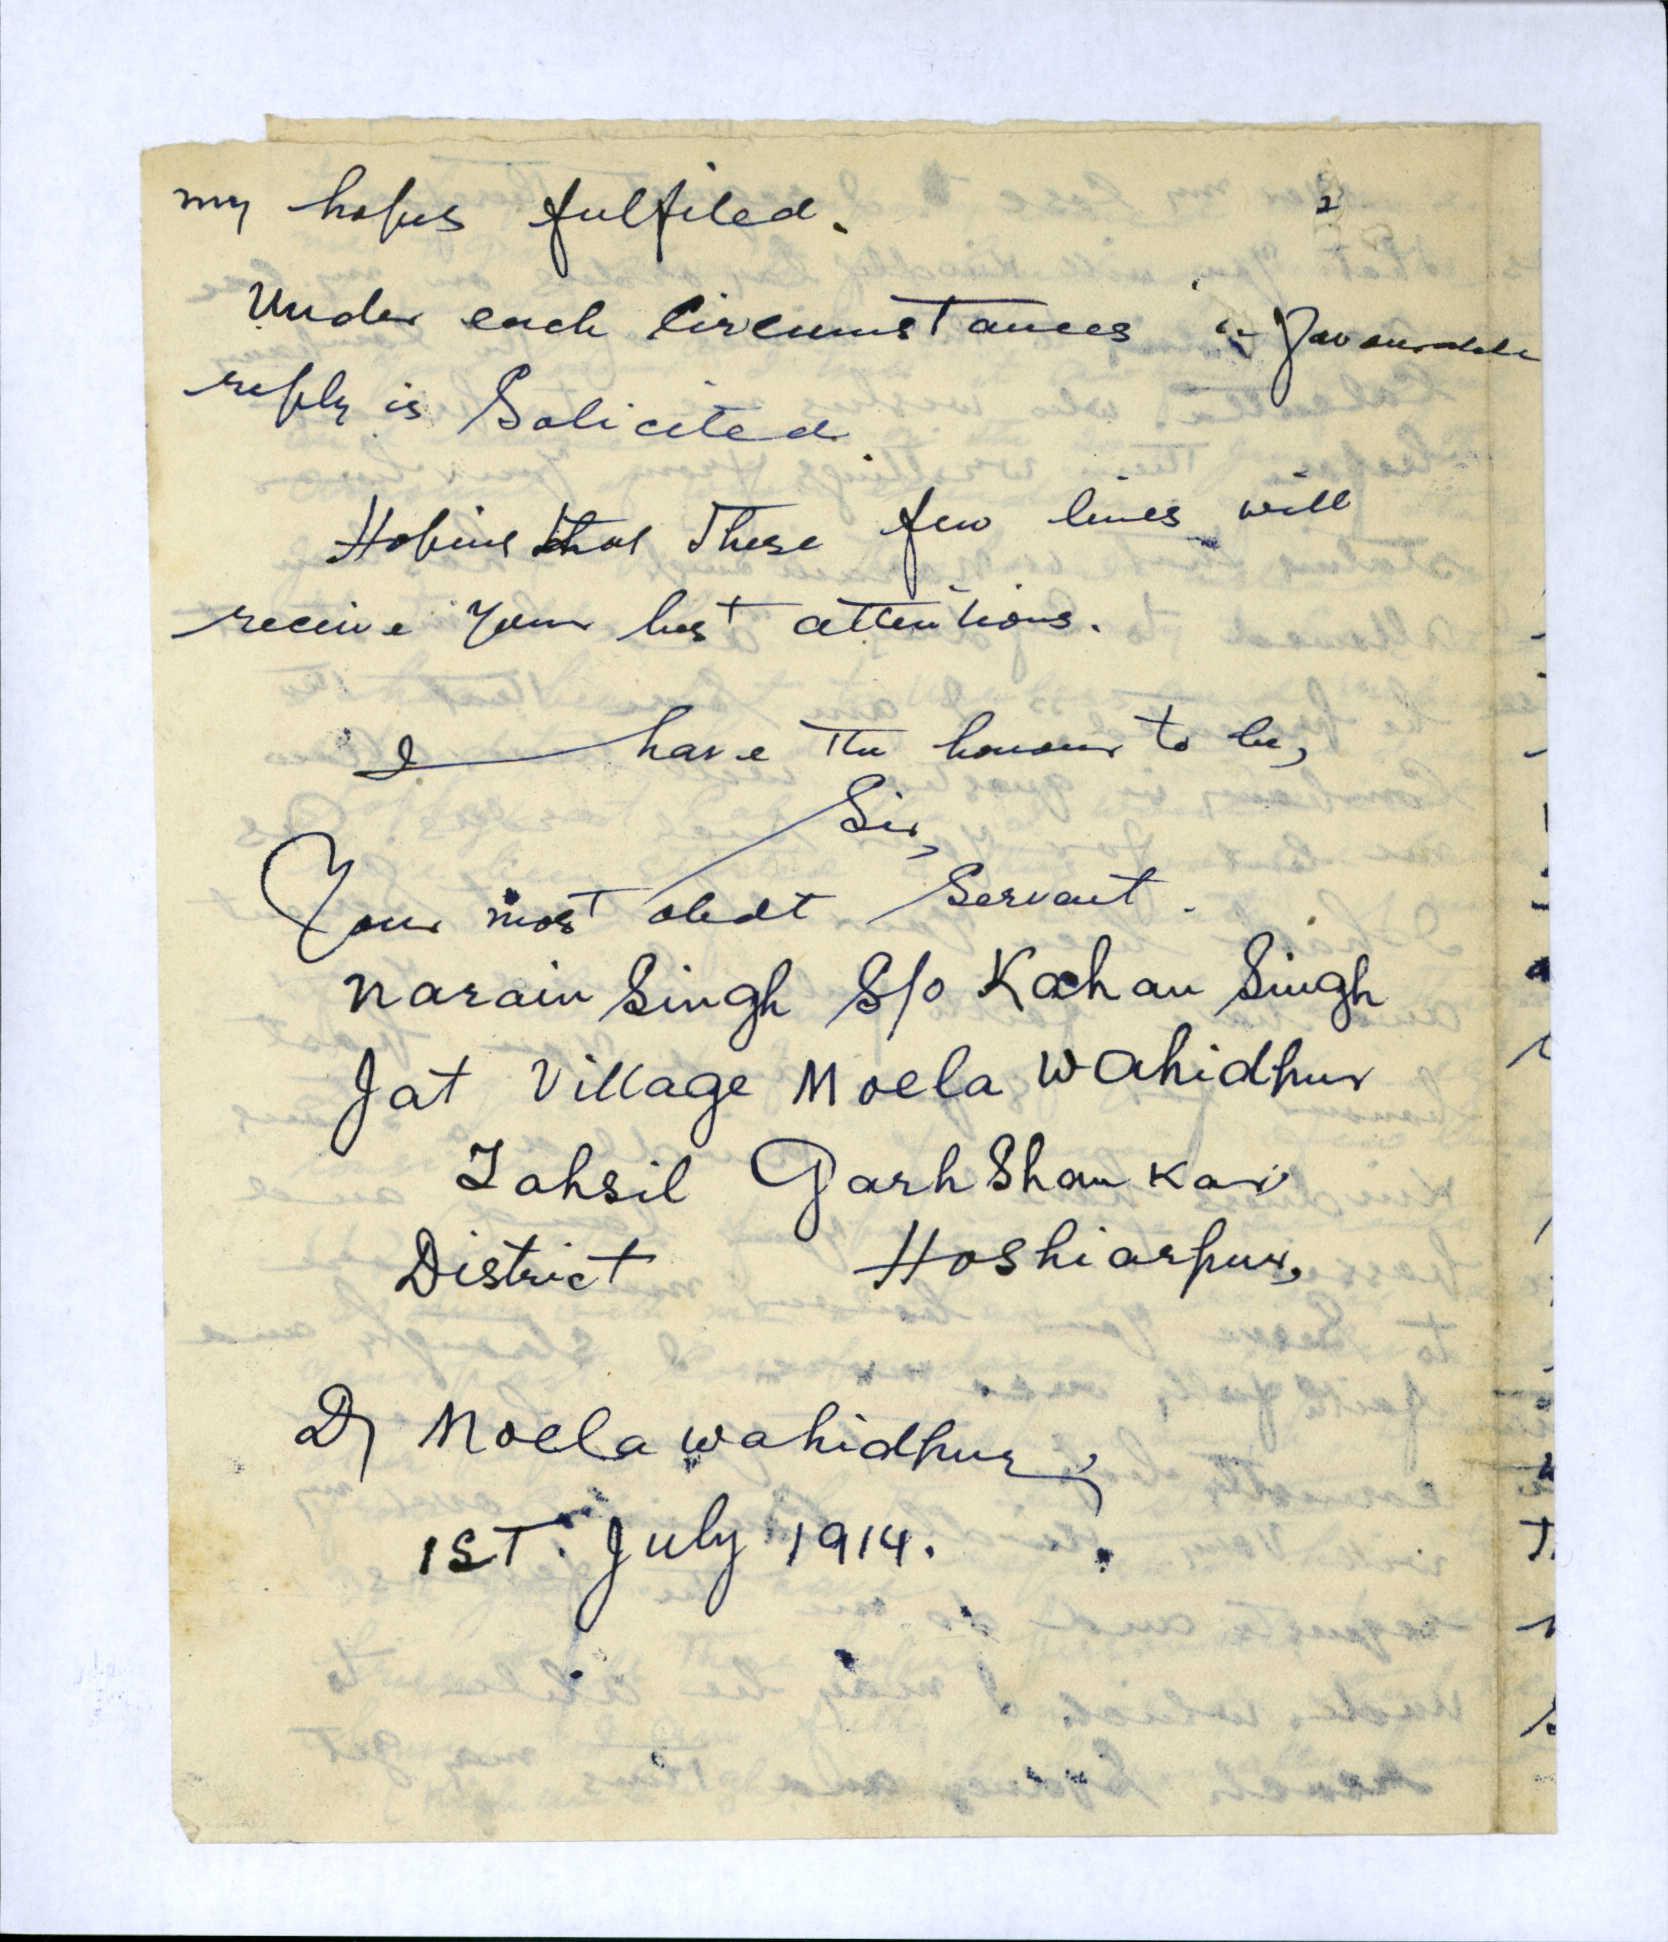 my hopes fulfiled.
2
Under each Circumstances a favourable
reply is Solicited
Hoping that These few lines will
receive your best attentions.
I have The honour to be,
Sir,
Your most obedt Servant.
Narain Singh S/o Kachan Singh
Jat Village Moela Wahidpur
Tahsil Garh Shankar
District Hoshiarpur,
D/ Moela wahidpur,
1ST. July 1914.